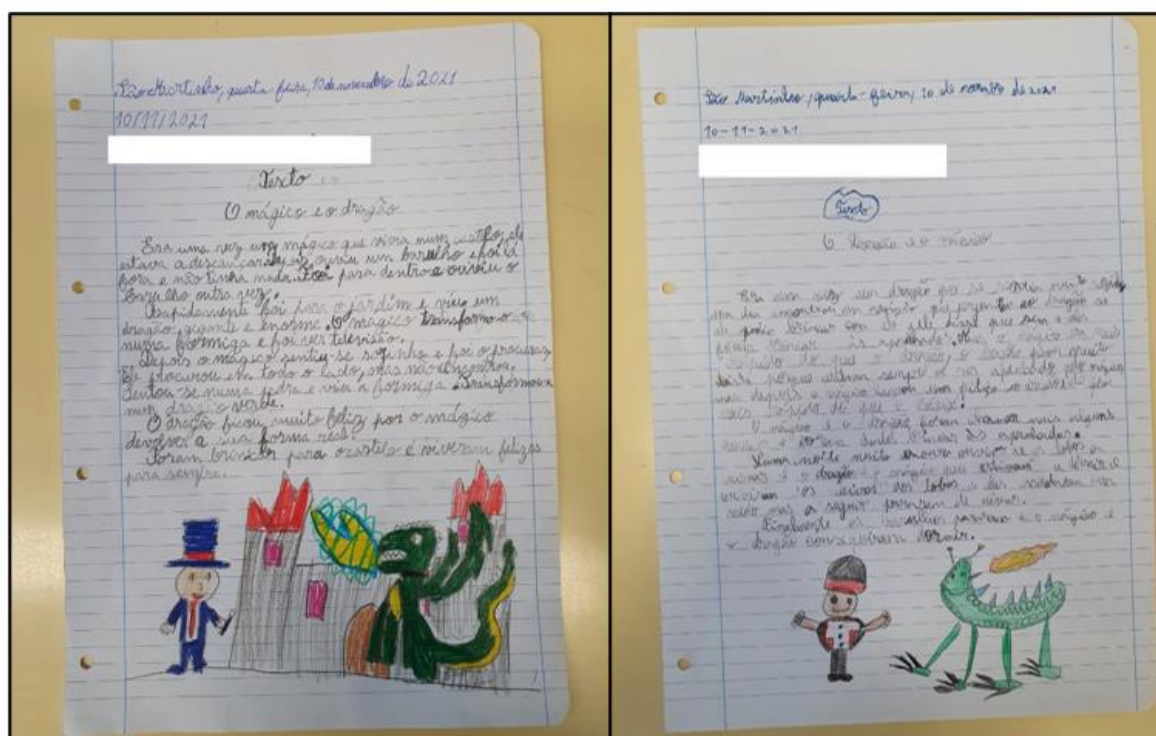 São Martinho, quarta-feira, 10 de novembro de 2021
10/11/2021
Texto
O mágico e o dragão
Era uma vez um mágico que vivia num castelo, ele
estava a descançar e ouviu um barulho e foi lá
fora e não tinha nada. Foi para dentro e ouviu o
barulho outra vez.
Rapidamente foi para o jardim e viu um
dragão gigante e enorme. O mágico transformo-o
numa formiga e foi ver televisão.
Depois o mágico sentiu-se sozinho e foi o procurar.
Ele procurou em todo o lado, mas não encontrou.
Sentou-se numa pedra e viu a formiga. Transformou-a
num dragão verde.
O dragão ficou muito feliz por o mágico
devolver a sua forma real.
Foram brincar para o castelo e viveram felizes
para sempre.
São Martinho, quarta-feira, 10 de de 2021
10-11-2021
Texto
O e o mágico
Era uma vez um dragão que se sentia muito
um dia encontrou um mágico que perguntou ao dragão se
ele podia brincar com ele, ele disse que sim e eles
foram brincar às apanhadas, mas o mágico era mais
rápido do que o dragão, o
triste porque estava sempre a ser apanhado pelo mágico
mas depois o mágico um feitiço
mais rápido do que o
O mágico e o dragão foram mais alguns
e foram brincar às apanhadas.
Numa noite muito escura os lobos a
e o dragão e o mágico que estavam a dormir
ouviram os uivos dos lobos e eles
medo mas a seguir de uivar.
Finalmente os e o mágico e
o dragão conseguiram dormir.